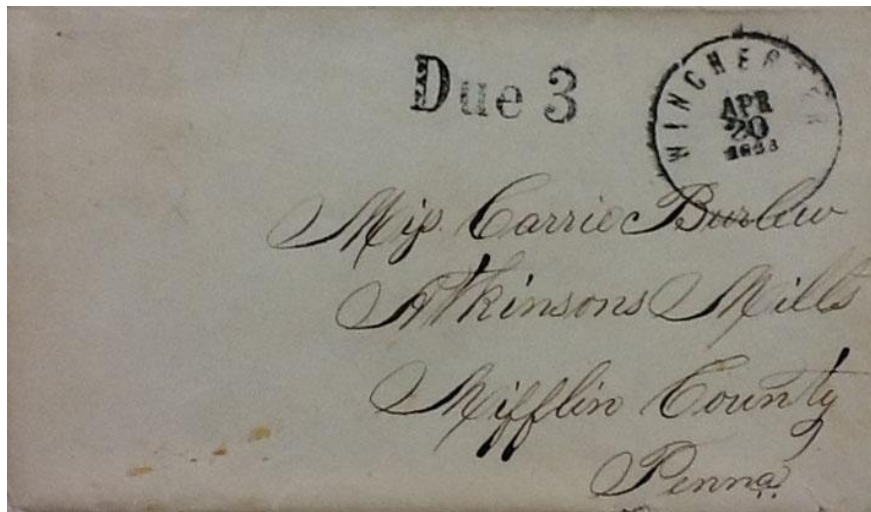 Due 3
WINCHESTER
APR
20
1863
Miss Carrie Burlew
Atkinsons Mills
Mifflin County
Penna.